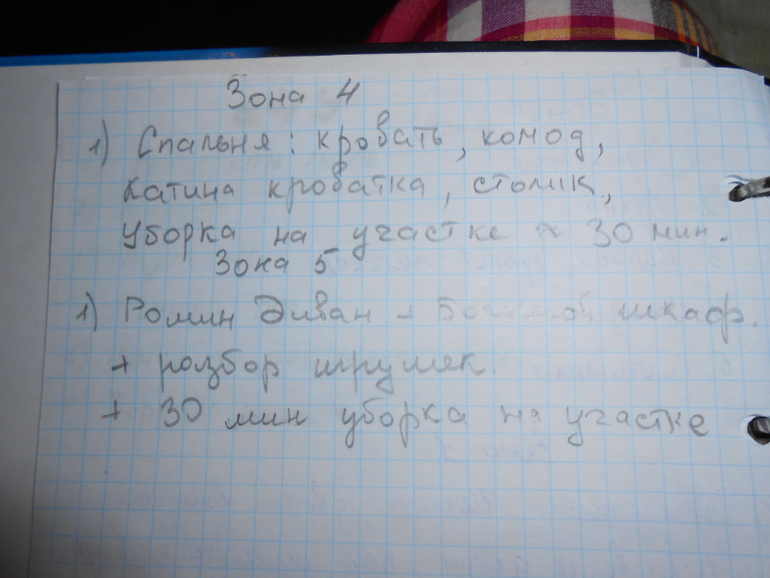 Зона 4
1) Спальня: кровать, комод,
Катина кроватка, столик,
Уборка на участке × 30 мин.
Зона 5
1) Ромин Диван + Большой шкаф.
+ разбор игрушек.
+ 30 мин уборка на участке